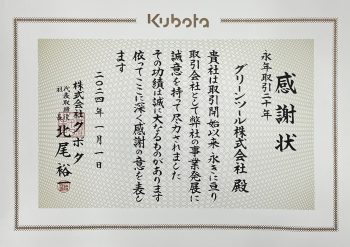 Kubota
感謝状
永年取引二十年
グリーンソール株式会社 殿
貴社は取引開始以来永きに亘り
取引会社として弊社の事業発展に
誠意を持って尽力されました
その功績は誠に大なるものがあります
依ってここに深く感謝の意を表し
ます
二〇二四年 一月一日
株式会社 クボタ
代表取締役
社長
北尾裕一